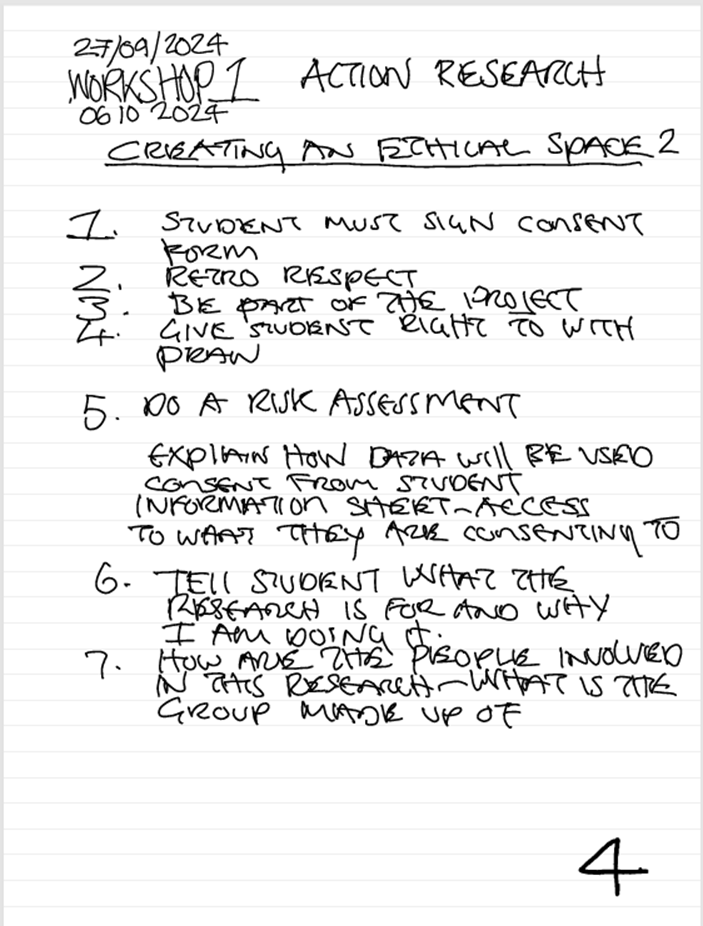 27/09/2024
WORKSHOP 1 ACTION RESEARCH
06 10 2024
CREATING AN ETHICAL SPACE 2
1. STUDENT MUST SIGN CONSENT
FORM
2. RETRO RESPECT
3. BE PART OF THE PROJECT
4. GIVE STUDENT RIGHT TO WITH
DRAW
5. DO A RISK ASSESSMENT
EXPLAIN HOW DATA WILL BE USED
CONSENT FROM STUDENT
INFORMATION SHEET-ACCESS
TO WHAT THEY ARE CONSENTING TO
6. TELL STUDENT WHAT THE
RESEARCH IS FOR AND WHY
I AM DOING IT.
7. HOW ARE THE PEOPLE INVOLVED
IN THIS RESEARCH-WHAT IS THE
GROUP MADE UP OF
4